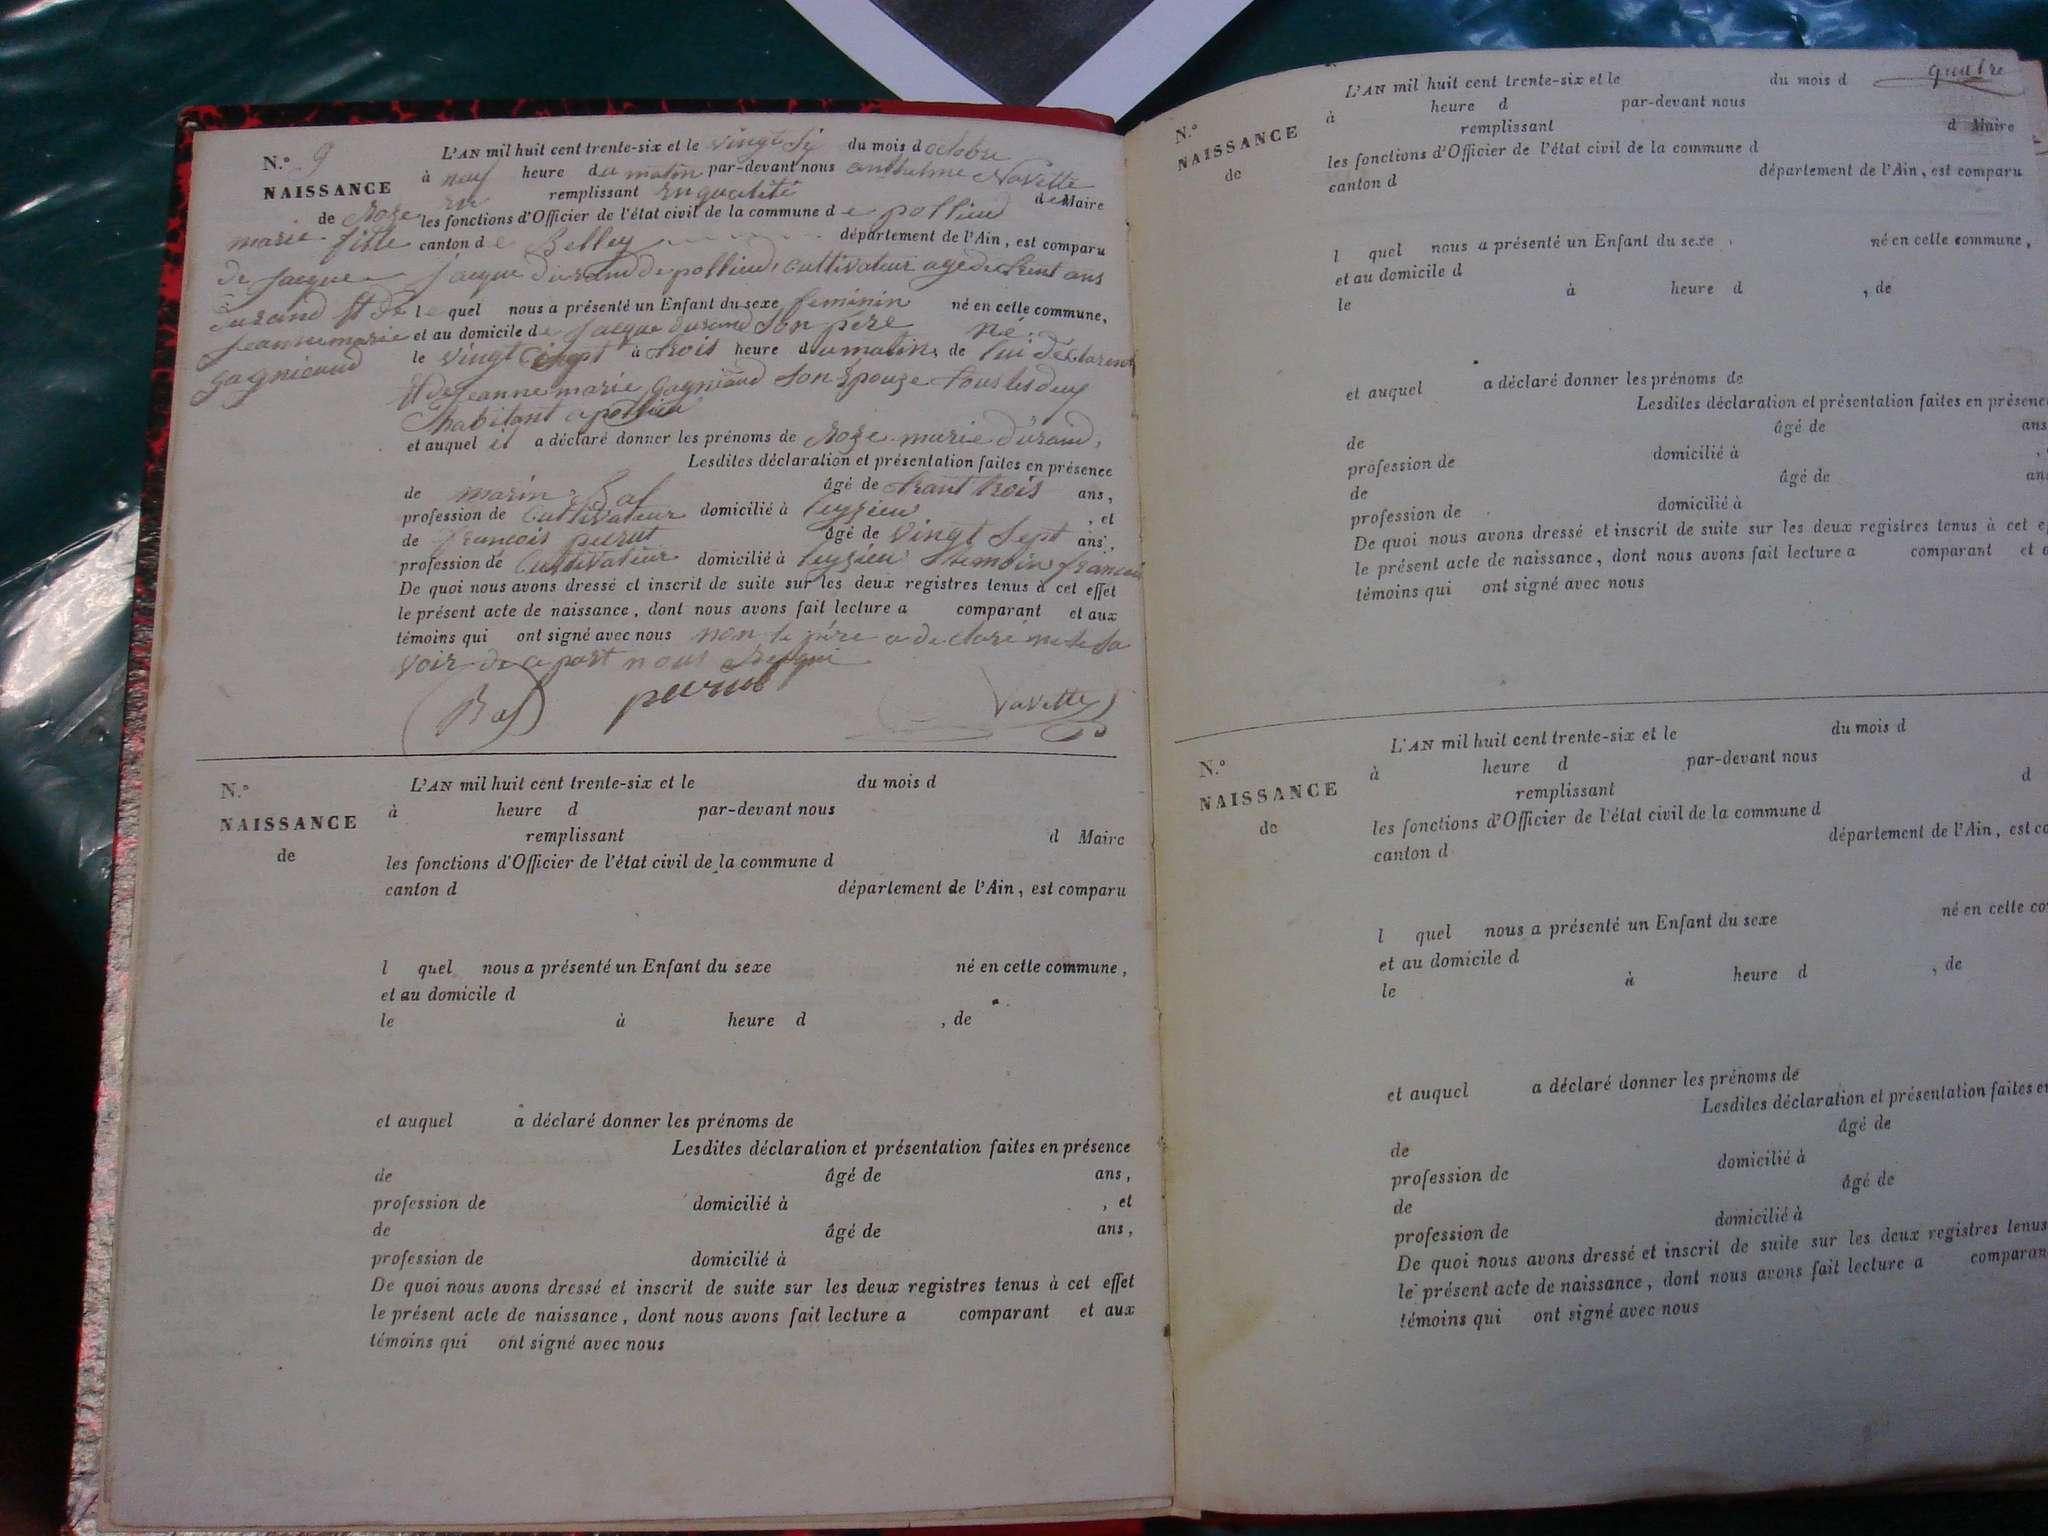 N.° 9
NAISSANCE
de Roze
marie fille
de jacque
durand Et de
jeannemarie
gagnieaud
L'AN mil huit cent trente-six et le vingt si du mois d octobre
à neuf heure du matin par-devant nous anthelme Navette
en remplissant en qualité de Maire
les fonctions d'Officier de l'état civil de la commune de pollieu
canton de Belley département de l'Ain, est comparu
jacque durand de pollieu, cultivateur age de trent ans
le quel nous a présenté un Enfant du sexe feminin né en cette commune,
et au domicile de jacque durand Son pere né
le vingt cinq à trois heure du matin, de lui déclarent
Et de jeanne marie gagnieaud Son Epouze tous les deux
habitant a pollieu
et auquel il a déclaré donner les prénoms de Roze marie durand,
Lesdites déclaration et présentation faites en présence
de marin Baf âgé de trant trois ans,
profession de Cultivateur domicilié à leyzieu , et
de francois peurut âgé de vingt Sept ans,
profession de Cultivateur domicilié à leyzieu Stemoin francois
De quoi nous avons dressé et inscrit de suite sur les deux registres tenus à cet effet
le présent acte de naissance, dont nous avons fait lecture a comparant et aux
témoins qui ont signé avec nous non le pére a declaré ne le Sa
voir de ce part nous Requi
Baf peurut Navette
N.°
NAISSANCE
de
L'AN mil huit cent trente-six et le du mois d
à heure d par-devant nous
remplissant d Maire
les fonctions d'Officier de l'état civil de la commune d
canton d département de l'Ain, est comparu
l quel nous a présenté un Enfant du sexe né en cette commune,
et au domicile d
le à heure d , de
et auquel a déclaré donner les prénoms de
Lesdites déclaration et présentation faites en présence
de âgé de ans,
profession de domicilié à , et
de âgé de ans,
profession de domicilié à
De quoi nous avons dressé et inscrit de suite sur les deux registres tenus à cet effet
le présent acte de naissance, dont nous avons fait lecture a comparant et aux
témoins qui ont signé avec nous
quatre
N.°
NAISSANCE
de
L'AN mil huit cent trente-six et le du mois d
à heure d par-devant nous
remplissant d Maire
les fonctions d'Officier de l'état civil de la commune d
canton d département de l'Ain, est comparu
l quel nous a présenté un Enfant du sexe né en cette commune,
et au domicile d
le à heure d , de
et auquel a déclaré donner les prénoms de
Lesdites déclaration et présentation faites en présence
de âgé de ans
profession de domicilié à ,
de âgé de an
profession de domicilié à
De quoi nous avons dressé et inscrit de suite sur les deux registres tenus à cet ef
le présent acte de naissance, dont nous avons fait lecture a comparant et a
témoins qui ont signé avec nous
N.°
NAISSANCE
de
L'AN mil huit cent trente-six et le du mois d
à heure d par-devant nous
remplissant d
les fonctions d'Officier de l'état civil de la commune d
canton d département de l'Ain, est co
l quel nous a présenté un Enfant du sexe né en cette co
et au domicile d
le à heure d , de
et auquel a déclaré donner les prénoms de
Lesdites déclaration et présentation faites en
de âgé de
profession de domicilié à
de âgé de
profession de domicilié à
De quoi nous avons dressé et inscrit de suite sur les deux registres tenus
le présent acte de naissance, dont nous avons fait lecture a comparan
témoins qui ont signé avec nous